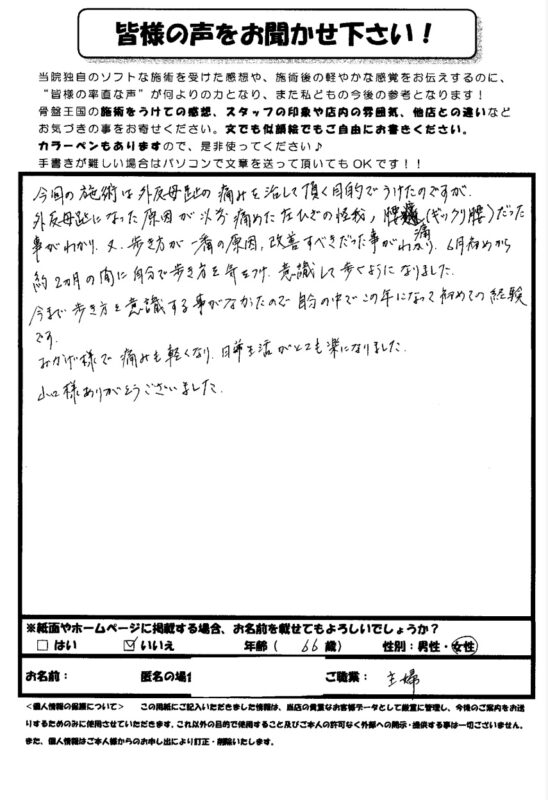 皆様の声をお聞かせ下さい！
当院独自のソフトな施術を受けた感想や、施術後の軽やかな感覚をお伝えするのに、
“皆様の率直な声”が何よりの力となり、また私どもの今後の参考となります！
骨盤王国の施術をうけての感想、スタッフの印象や店内の雰囲気、他店との違いなど
お気づきの事をお寄せください。文でも似顔絵でもご自由にお書きください。
カラーペンもありますので、是非使ってください♪
手書きが難しい場合はパソコンで文章を送って頂いてもOKです！！
今回の施術は外反母趾の痛みを治して頂く目的でうけたのですが、
外反母趾になった原因が以前痛めた左ひざの怪我、腰痛（ギックリ腰）だった
事がわかり、又、歩き方が一番の原因、改善すべきだった事がわかり、6月初めから
約2カ月の間に自分で歩き方を気をつけ、意識して歩くようになりました。
今まで歩き方を意識する事がなかったので自分の中でこの年になって初めての経験
です。
おかげ様で痛みも軽くなり、日常生活がとても楽になりました。
山口様ありがとうございました。
※紙面やホームページに掲載する場合、お名前を載せてもよろしいでしょうか？
□ はい ☑ いいえ 年齢（ 66 歳） 性別：男性・女性
お名前： 匿名の場合 ご職業： 主婦
＜個人情報の保護について＞ この用紙にご記入いただきました情報は、当店の貴重なお客様データとして厳重に管理し、今後のご案内をお送
りするためのみに使用させていただきます。これ以外の目的で使用すること及びご本人の許可なく外部への開示・提供する事は一切ございません。
また、個人情報はご本人様からのお申し出により訂正・削除いたします。